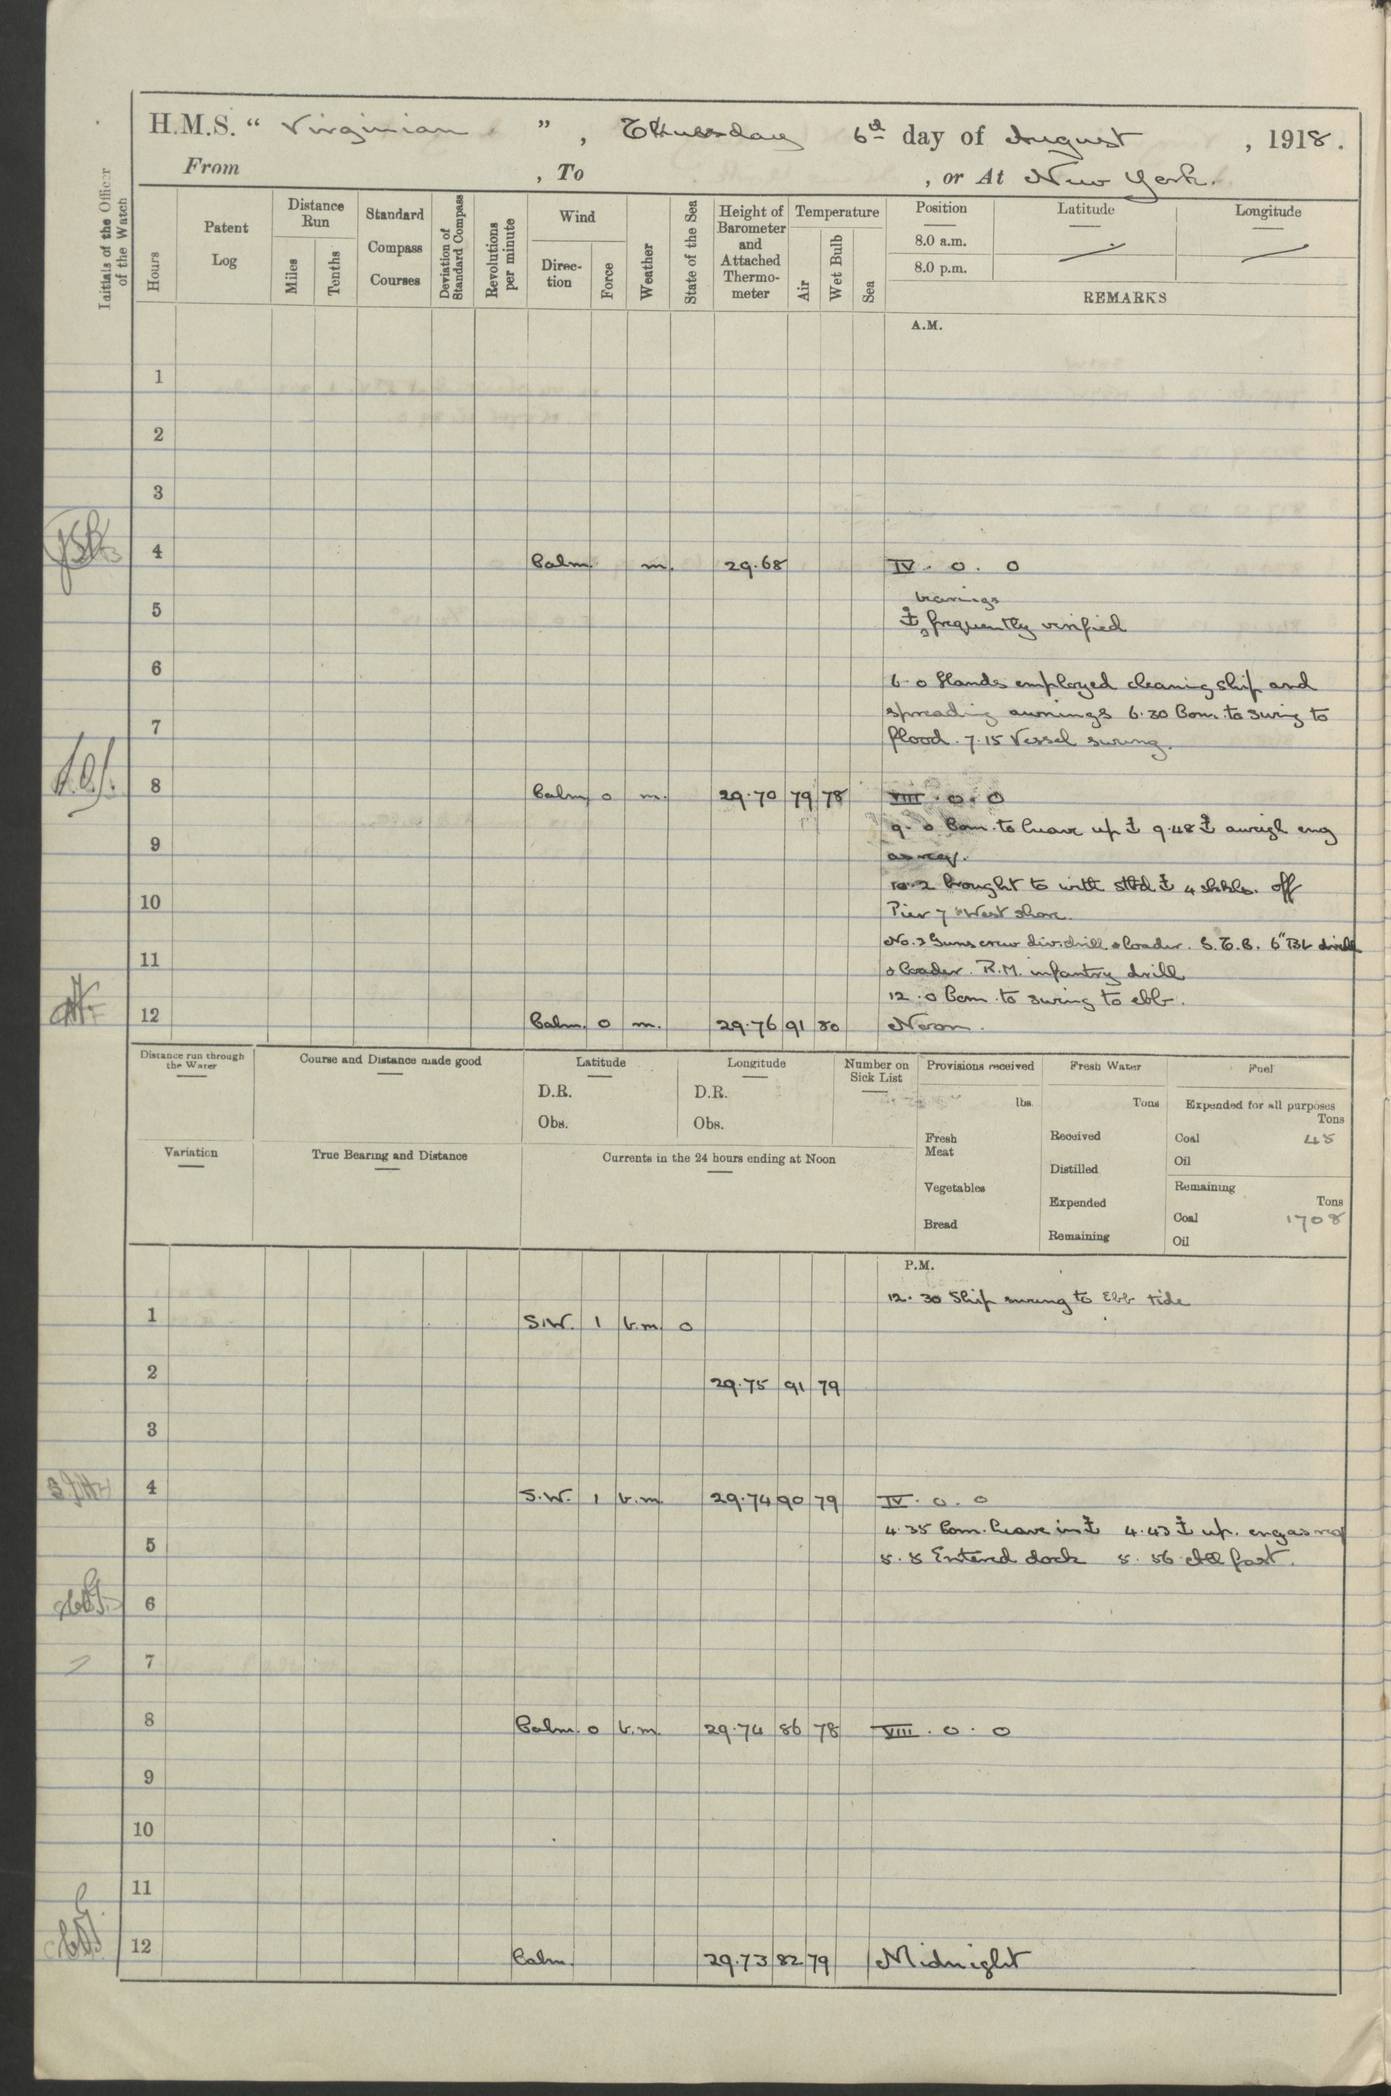 H.M.S. “ Virginian ” , Thuesday 6th day of August , 1918.
From , To , or At New York.
Initials of the Officer of the Watch
Hours
Patent Log
Distance Run
Miles
Tenths
Standard Compass Courses
Deviation of Standard Compass
Revolutions per minute
Wind
Direc-tion
Force
Weather
State of the Sea
Height of Barometer and Attached Thermo-meter
Temperature
Air
Wet Bulb
Sea
Position Latitude Longitude
8.0 a.m.
8.0 p.m.
REMARKS
A.M.
1
2
3
4 Calm m. 29.68 IV. 0. 0
bearings
5 ⚓ frequently verified
6
6.0 Hands employed cleaning ship and
spreading awnings 6.30 Com. to swing to
7
flood. 7.15 Vessel swung.
8 Calm 0 m. 29.70 79 78 VIII. 0. 0
9.0 Com. to heave up ⚓ 9.48 ⚓ aweigh eng
9
as req.
10.2 Brought to with stbd ⚓ 4 shkls. off
10
Pier 7 West shore.
No. 2 Guns crew div. drill & loader. S.T.B. 6" BL drill
11
& loader. R.M. infantry drill
12.0 Com. to swing to ebb.
12 Calm. 0 m. 29.76 91 80 Noon.
Distance run through the Water
Course and Distance made good
Latitude
D.R.
Obs.
Longitude
D.R.
Obs.
Number on Sick List
Provisions received
lbs.
Fresh Meat
Vegetables
Bread
Fresh Water
Tons
Received
Distilled
Expended
Remaining
Fuel
Expended for all purposes
Tons
Coal 45
Oil
Remaining
Tons
Coal 1708
Oil
Variation
True Bearing and Distance
Currents in the 24 hours ending at Noon
P.M.
12.30 Ship swung to Ebb tide
1 S.W. 1 b.m. 0
2 29.75 91 79
3
4 S.W. 1 b.m. 29.74 90 79 IV. 0. 0
4.35 Com. heave in ⚓ 4.43 ⚓ up. eng as req
5
5.5 Entered dock 5.56 All fast.
6
7
8 Calm. 0 b.m. 29.74 86 78 VIII. 0. 0
9
10
11
12 Calm. 29.73 82 79 Midnight